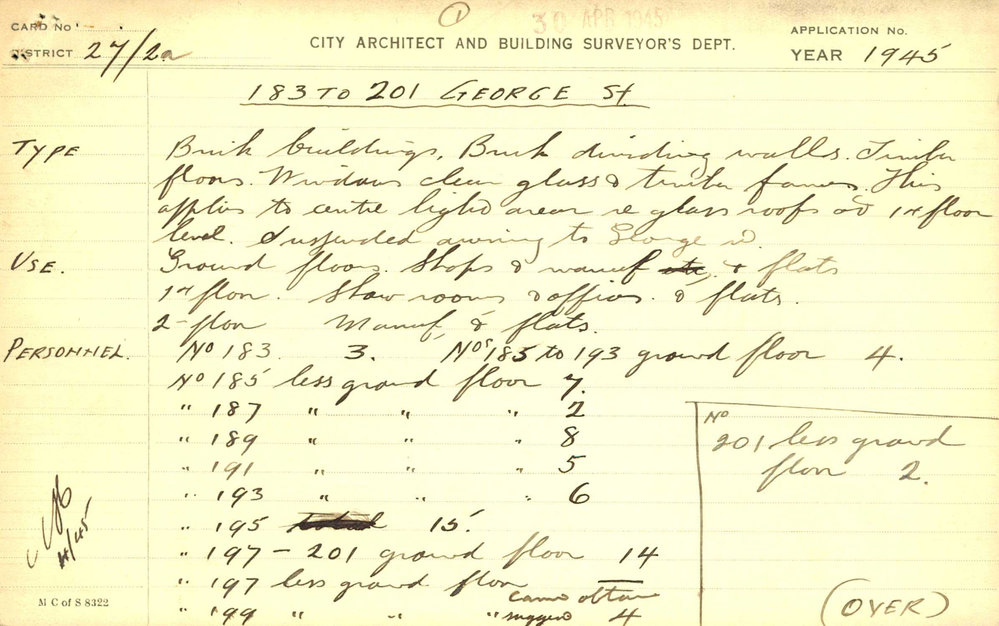 ①
30 APR 1945
CARD No
DISTRICT 27/2a
CITY ARCHITECT AND BUILDING SURVEYOR'S DEPT.
APPLICATION No.
YEAR 1945
183 TO 201 GEORGE St
TYPE Brick buildings, Brick dividing walls. Timber
floors. Windows clear glass & timber frames. This
applies to centre light areas re glass roofs at 1st floor
level. Suspended awning to George St.
USE. Ground floors. Shops & manuf etc, & flats
1st floor. Show rooms & offices. & flats.
2- floor Manuf, & flats.
PERSONNEL. No 183 3. Nos 185 to 193 ground floor 4.
No 185 less ground floor 7.
" 187 " " " 2
" 189 " " " 8
" 191 " " " 5
" 193 " " " 6
" 195 total 15.
" 197 - 201 ground floor 14
" 197 less ground floor —
" 199 " " " 4
No
201 less ground
floor 2.
4/45
M C of S 8322
(OVER)